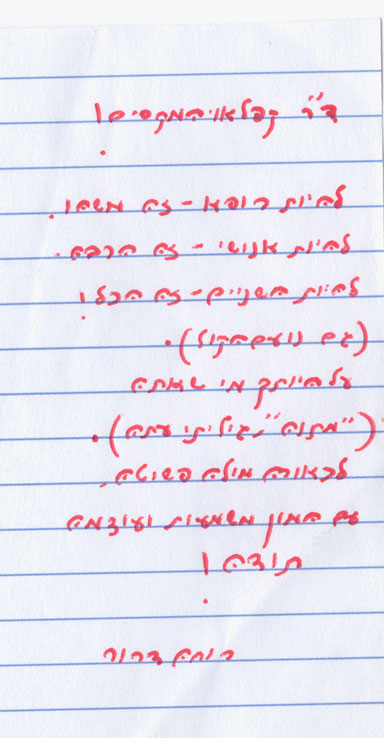 ד"ר קפלאוי המקסים!
להיות רופא - זה משהו.
להיות אנושי - זה הרבה.
להיות השניים - זה הכל!
(גם נועם הקול).
על היותך מי שאתה
("מתוה", גיליתי עתה).
לכאורה מילה פשוטה,
עם המון משמעות ועוצמה
תודה!
רותם דרור